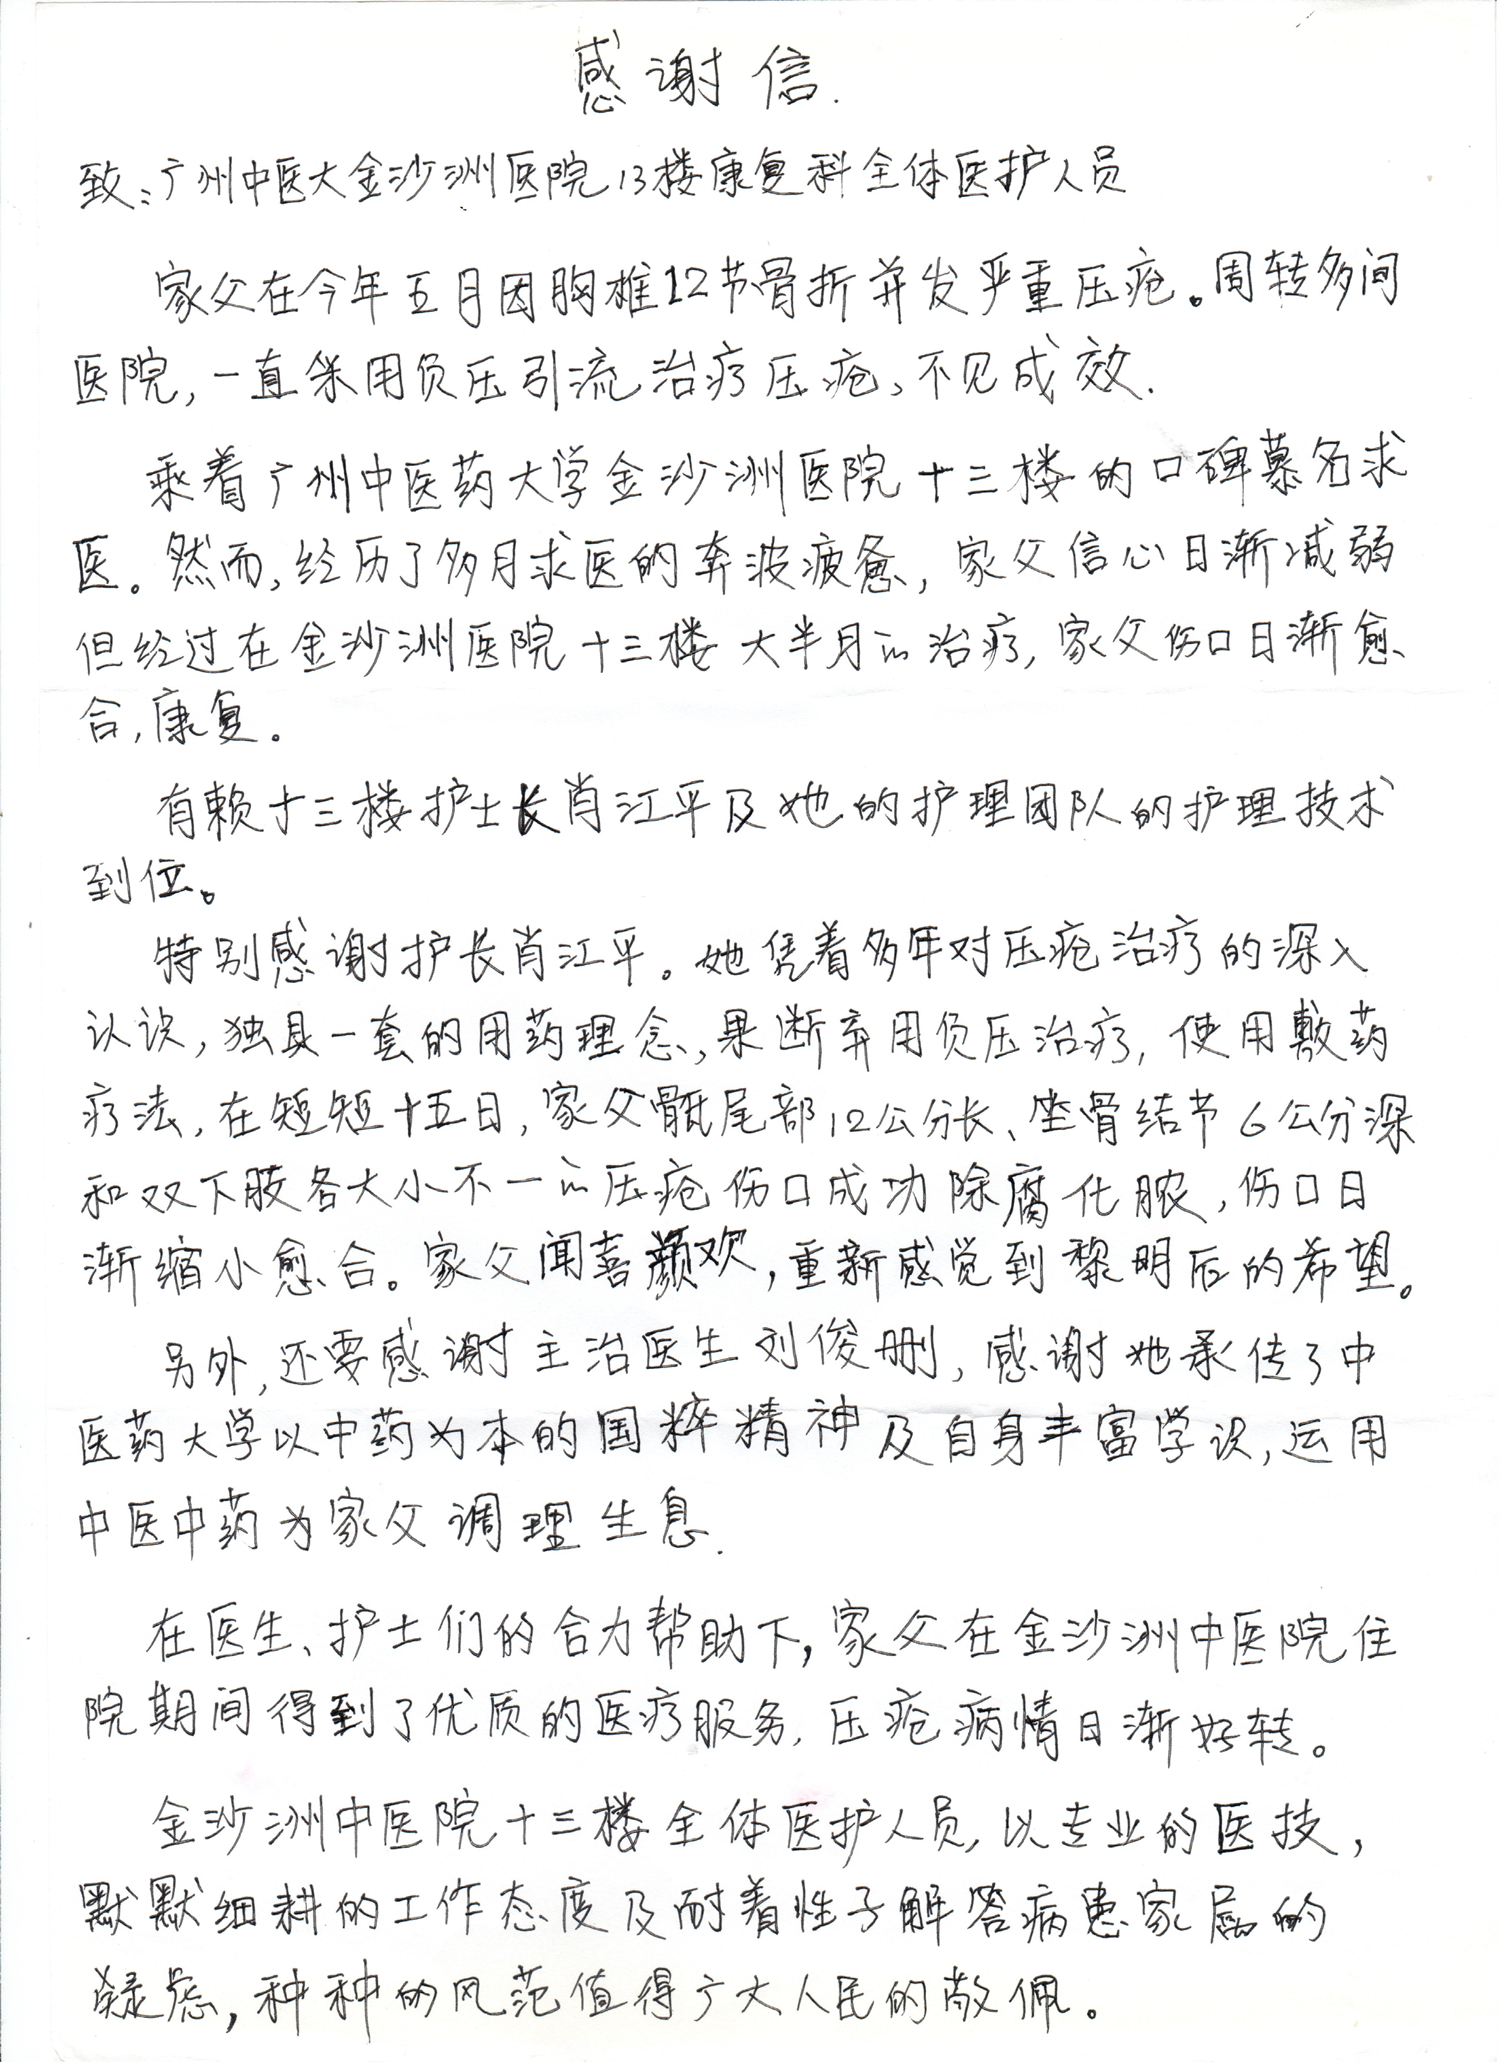 感谢信.
致:广州中医大金沙洲医院13楼康复科全体医护人员
家父在今年五月因胸椎12节骨折并发严重压疮。周转多间
医院,一直采用负压引流治疗压疮、不见成效.
乘着广州中医药大学金沙洲医院十三楼的口碑慕名求
医。然而,经历了多月求医的奔波疲惫,家父信心日渐减弱
但经过在金沙洲医院十三楼大半月的治疗,家父伤口日渐愈
合,康复。
有赖十三楼护士长肖江平及她的护理团队的护理技术
到位。
特别感谢护长肖江平。她凭着多年对压疮治疗的深入
认识,独具一套的用药理念,果断弃用负压治疗,使用敷药
疗法,在短短十五日,家父骶尾部12公分长、坐骨结节6公分深
和双下肢各大小不一的压疮伤口成功除腐化脓,伤口日
渐缩小愈合。家父闻喜颜欢,重新感觉到黎明后的希望。
另外,还要感谢主治医生刘俊删,感谢她承传了中
医药大学以中药为本的国粹精神及自身丰富学识,运用
中医中药为家父调理生息.
在医生、护士们的合力帮助下,家父在金沙洲中医院住
院期间得到了优质的医疗服务,压疮病情日渐好转。
金沙洲中医院十三楼全体医护人员,以专业的医技,
默默细耕的工作态度及耐着性子解答病患家属的
疑虑,种种的风范值得广大人民的敬佩。